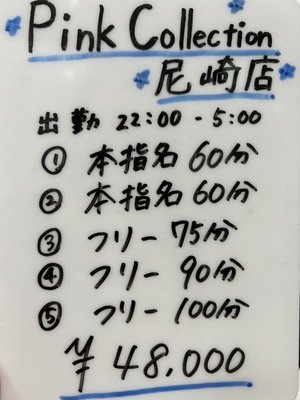 Pink Collection
尼崎店
出勤 22:00 - 5:00
① 本指名 60分
② 本指名 60分
③ フリー 75分
④ フリー 90分
⑤ フリー 100分
¥ 48,000